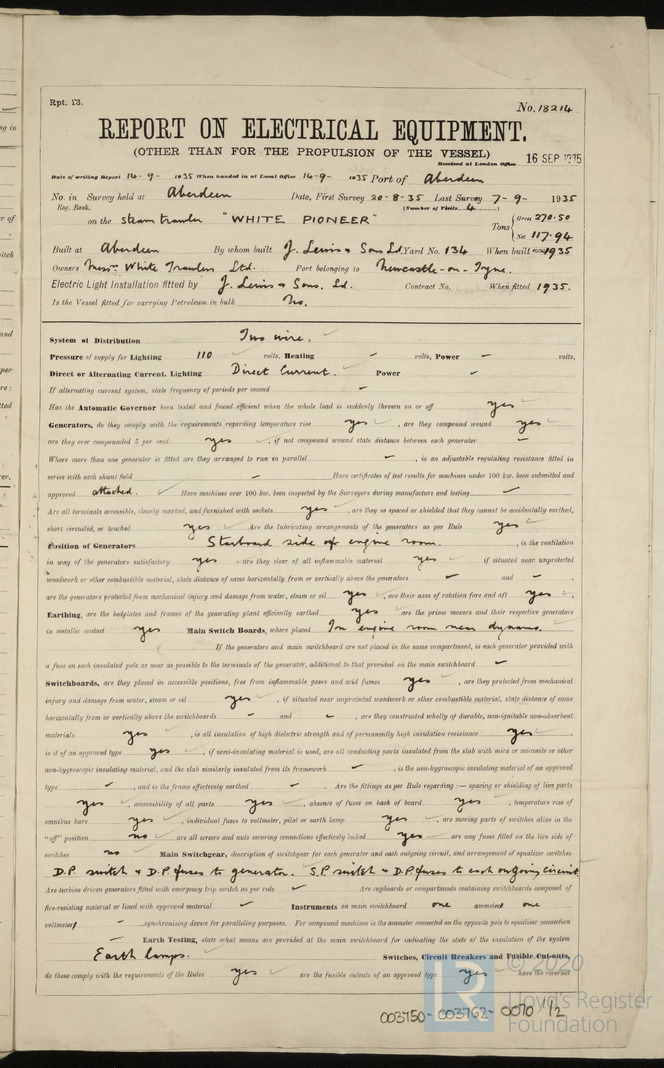 Rpt. 13.
No. 18214
REPORT ON ELECTRICAL EQUIPMENT.
(OTHER THAN FOR THE PROPULSION OF THE VESSEL)
Received at London Office 16 SEP 1935
Date of writing Report 14-9- 1935 When handed in at Local Office 14-9- 1935 Port of Aberdeen
No. in Survey held at Aberdeen Date, First Survey 20-8-35 Last Survey 7-9- 1935
Reg. Book. (Number of Visits 4)
on the steam trawler "WHITE PIONEER" Tons { Gross 270.50
Net 117.94
Built at Aberdeen By whom built J. Lewis & Sons Ld Yard No. 134 When built 1935
Owners Messrs White Trawlers Ltd. Port belonging to Newcastle-on-Tyne.
Electric Light Installation fitted by J. Lewis & Sons, Ld. Contract No. When fitted 1935.
Is the Vessel fitted for carrying Petroleum in bulk No.
System of Distribution Two wire.
Pressure of supply for Lighting 110 volts, Heating - volts, Power - volts.
Direct or Alternating Current, Lighting Direct Current. Power -
If alternating current system, state frequency of periods per second -
Has the Automatic Governor been tested and found efficient when the whole load is suddenly thrown on or off yes
Generators, do they comply with the requirements regarding temperature rise yes, are they compound wound yes
are they over compounded 5 per cent. yes, if not compound wound state distance between each generator -
Where more than one generator is fitted are they arranged to run in parallel -, is an adjustable regulating resistance fitted in
series with each shunt field - Have certificates of test results for machines under 100 kw. been submitted and
approved attached. Have machines over 100 kw. been inspected by the Surveyors during manufacture and testing -
Are all terminals accessible, clearly marked, and furnished with sockets yes, are they so spaced or shielded that they cannot be accidentally earthed,
short circuited, or touched yes Are the lubricating arrangements of the generators as per Rule yes
Position of Generators Starboard side of engine room., is the ventilation
in way of the generators satisfactory yes are they clear of all inflammable material yes if situated near unprotected
woodwork or other combustible material, state distance of same horizontally from or vertically above the generators - and -,
are the generators protected from mechanical injury and damage from water, steam or oil yes, are their axes of rotation fore and aft yes,
Earthing, are the bedplates and frames of the generating plant efficiently earthed yes are the prime movers and their respective generators
in metallic contact yes Main Switch Boards, where placed In engine room near dynamo.
If the generators and main switchboard are not placed in the same compartment, is each generator provided with
a fuse on each insulated pole as near as possible to the terminals of the generator, additional to that provided on the main switchboard -
Switchboards, are they placed in accessible positions, free from inflammable gases and acid fumes yes, are they protected from mechanical
injury and damage from water, steam or oil yes, if situated near unprotected woodwork or other combustible material, state distance of same
horizontally from or vertically above the switchboards - and -, are they constructed wholly of durable, non-ignitable non-absorbent
materials yes, is all insulation of high dielectric strength and of permanently high insulation resistance yes,
is it of an approved type yes, if semi-insulating material is used, are all conducting parts insulated from the slab with mica or micanite or other
non-hygroscopic insulating material, and the slab similarly insulated from its framework -, is the non-hygroscopic insulating material of an approved
type -, and is the frame effectively earthed -. Are the fittings as per Rule regarding :- spacing or shielding of live parts
yes, accessibility of all parts yes, absence of fuses on back of board yes, temperature rise of
omnibus bars yes, individual fuses to voltmeter, pilot or earth lamp yes, are moving parts of switches alive in the
"off" position no are all screws and nuts securing connections effectively locked yes are any fuses fitted on the live side of
switches no Main Switchgear, description of switchgear for each generator and each outgoing circuit, and arrangement of equalizer switches
D.P. switch & D.P. fuses to generator. S.P. switch & D.P. fuses to each outgoing circuit
Are turbine driven generators fitted with emergency trip switch as per rule - Are cupboards or compartments containing switchboards composed of
fire-resisting material or lined with approved material - Instruments on main switchboard one ammeters one
voltmeters - synchronising device for paralleling purposes. For compound machines is the ammeter connected on the opposite pole to equaliser connection
- Earth Testing, state what means are provided at the main switchboard for indicating the state of the insulation of the system
Earth lamps. Switches, Circuit Breakers and Fusible Cut-outs,
do these comply with the requirements of the Rules yes are the fusible cutouts of an approved type yes have the reversed
© 2020
Lloyd's Register
Foundation
003750-003762-0070 1/2